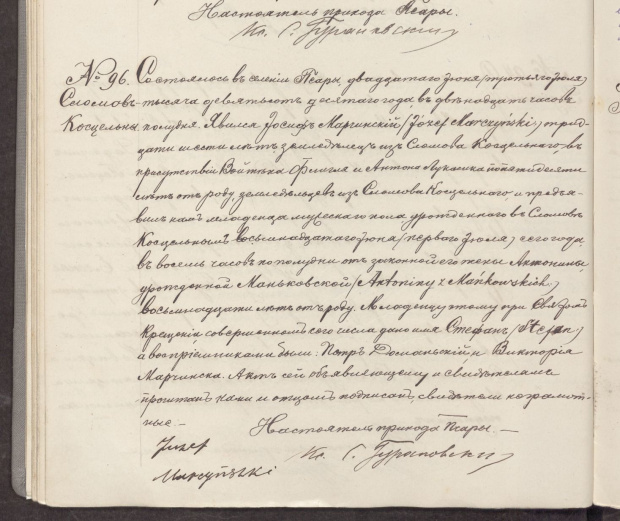 Настоятель прихода Псары.
Кс. С. Гурановский
№ 96. Состоялось въ селенiи Псары, двадцатаго Iюня /третьяго Iюля/
Сломовъ тысяча девятьсотъ десятаго года, въ двѣнадцать часовъ
Косцельны полудня. Явился Iосифъ Марчинскiй, /Józef Marczyński,/ трид-
цати шести лѣтъ, земледѣлецъ изъ Сломова Косцельнаго, въ
присутствiи Войтѣха и Антона попятидесяти
лѣтъ отъ роду, земледѣльцевъ изъ Сломова Косцельнаго, и предъя-
вилъ намъ младенца мужескаго пола, урожденнаго въ Сломовѣ
Косцельнымъ восьмнадцатаго Iюня /перваго Iюля/ сего года,
въ восемь часовъ по полудни отъ законной его жены Антонины,
урожденной Маньковской /Antoniny z Mańkowskich,/
восьмнадцати лѣтъ отъ роду. Младенцу этому при Святомъ
Крещенiи, совершенномъ сего числа дано имя Стефанъ /Stefan/
а воспрiемниками были: Петръ и Викторiя
Марчинска. Актъ сей объявляющему и свидѣтелямъ
прочитанъ, нами и отцомъ подписанъ, свидѣтели неграмот-
ные. —
Настоятель прихода Псары. —
Józef
Marczyński
Кс. С. Гурановскiй